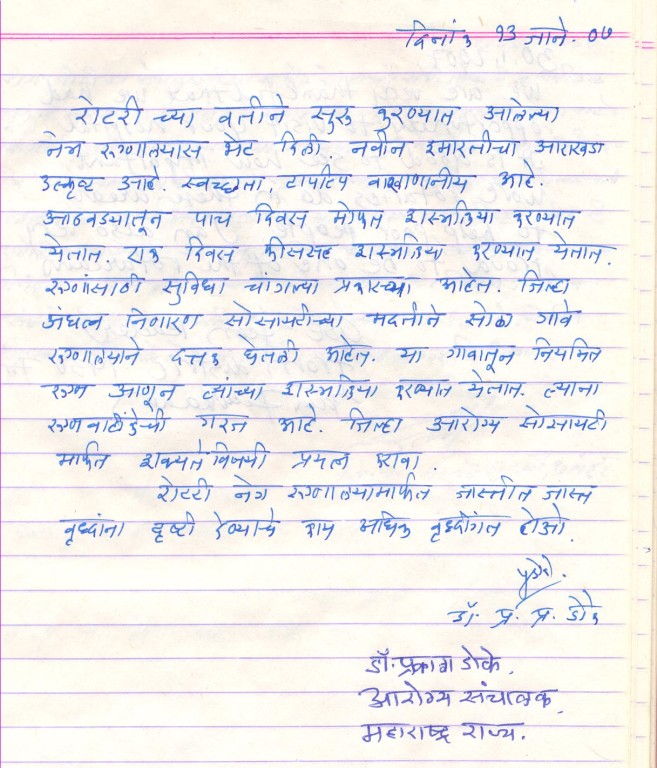 दिनांक १३ जाने. ०७
रोटरी च्या वतीने सुरु करण्यात आलेल्या
नेत्र रुग्णालयास भेट दिली. नवीन इमारतीचा आराखडा
उत्कृष्ट आहे. स्वच्छता, टापटिप वाखाणनीय आहे.
आठवड्यातून पाच दिवस मोफत शस्त्रक्रिया करण्यात
येतात. एक दिवस फीससह शस्त्रक्रिया करण्यात येतात.
रुग्णांसाठी सुविधा चांगल्या प्रकारच्या आहेत. जिल्हा
अंधत्व निवारण सोसायटीच्या मदतीने सोळा गावे
रुग्णालयाने दत्तक घेतली आहेत. या गावातून नियमित
रुग्न आणून त्यांच्या शस्त्रक्रिया करण्यात येतात. त्यांना
रुग्णवाहीकेची गरज आहे. जिल्हा आरोग्य सोसायटी
मार्फत शक्यतेविषयी प्रयत्न करावा.
रोटरी नेत्र रुग्णालयामार्फत जास्तीत जास्त
वृध्दांना दृष्टी देण्याचे काम अधिक वृध्दींगत होओ.
डॉ. प्र. प्र. डोके
डॉ. प्रकाश डोके.
आरोग्य संचालक,
महाराष्ट्र राज्य.